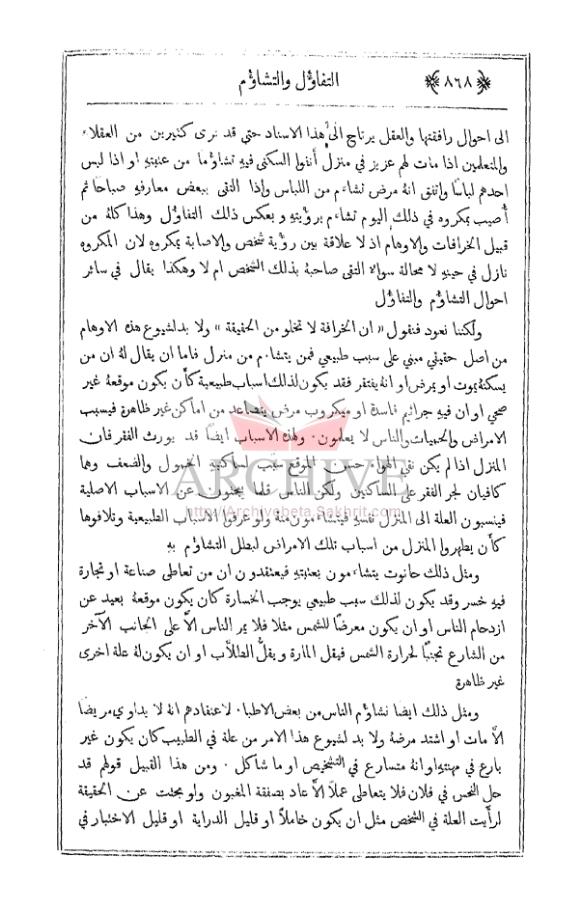 ﴿٨٦٨﴾ التفاؤل والتشاؤم
الى احوال رافقتها والعقل يرتاح الى هذا الاسناد حتى قد نرى كثيرين من العقلاء
والمتعلمين اذا مات لهم عزيز في منزل أنفوا السكنى فيه تشاؤما من عتبته او اذا لبس
احدهم لباسًا واتفق انه مرض تشاءم من اللباس واذا التقى ببعض معارفه صباحًا ثم
أصيب بمكروه في ذلك اليوم تشاءم برؤيته وبعكس ذلك التفاؤل وهذا كله من
قبيل الخرافات والاوهام اذ لا علاقة بين رؤية شخص والاصابة بمكروه لان المكروه
نازل في حينه لا محالة سواء التقى صاحبه بذلك الشخص ام لا وهكذا يقال في سائر
احوال التشاؤم والتفاؤل
ولكننا نعود فنقول « ان الخرافة لا تخلو من الحقيقة » ولا بد لشيوع هذه الاوهام
من اصل حقيقي مبني على سبب طبيعي فمن يتشاءم من منزل فاما ان يقال له ان من
يسكنه يموت او يمرض او انه يفتقر فقد يكون لذلك اسباب طبيعية كأن يكون موقعه غير
صحي او ان فيه جراثيم فاسدة او ميكروب مرض يتصاعد من اماكن غير ظاهرة فيسبب
الامراض والحميات والناس لا يعلمون . ولهذه الاسباب ايضًا قد يورث الفقر فان
المنزل اذا لم يكن نقي الهواء حسن الموقع سبب لساكنيه الخمول والضعف وهما
كافيان لجر الفقر على الساكنين ولكن الناس قلما يبحثون عن الاسباب الاصلية
فينسبون العلة الى المنزل نفسه فيتشاءمون منه ولو عرفوا الاسباب الطبيعية وتلافوها
كأن يطهروا المنزل من اسباب تلك الامراض لبطل التشاؤم به
ومثل ذلك حانوت يتشاءمون بعتبته فيعتقدون ان من تعاطى صناعة او تجارة
فيه خسر وقد يكون لذلك سبب طبيعي يوجب الخسارة كان يكون موقعه بعيد عن
ازدحام الناس او ان يكون معرضًا للشمس مثلا فلا يمر الناس الاَّ على الجانب الآخر
من الشارع تجنبًا لحرارة الشمس فيقل المارة ويقلُّ الطلاَّب او ان يكون له علة اخرى
غير ظاهرة
ومثل ذلك ايضا تشاؤم الناس من بعض الاطباء لاعتقادهم انه لا يداوي مريضًا
الاَّ مات او اشتد مرضه ولا بد لشيوع هذا الامر من علة في الطبيب كان يكون غير
بارع في مهنته او انه متسارع في التشخيص او ما شاكل . ومن هذا القبيل قولهم قد
حل النحس في فلان فلا يتعاطى عملاً الاَّ عاد بصفقة المغبون ولو بحثت عن الحقيقة
لرأيت العلة في الشخص مثل ان يكون خاملاً او قليل الدراية او قليل الاختبار في
ARCHIVE
http://Archivebeta.Sakhrit.com